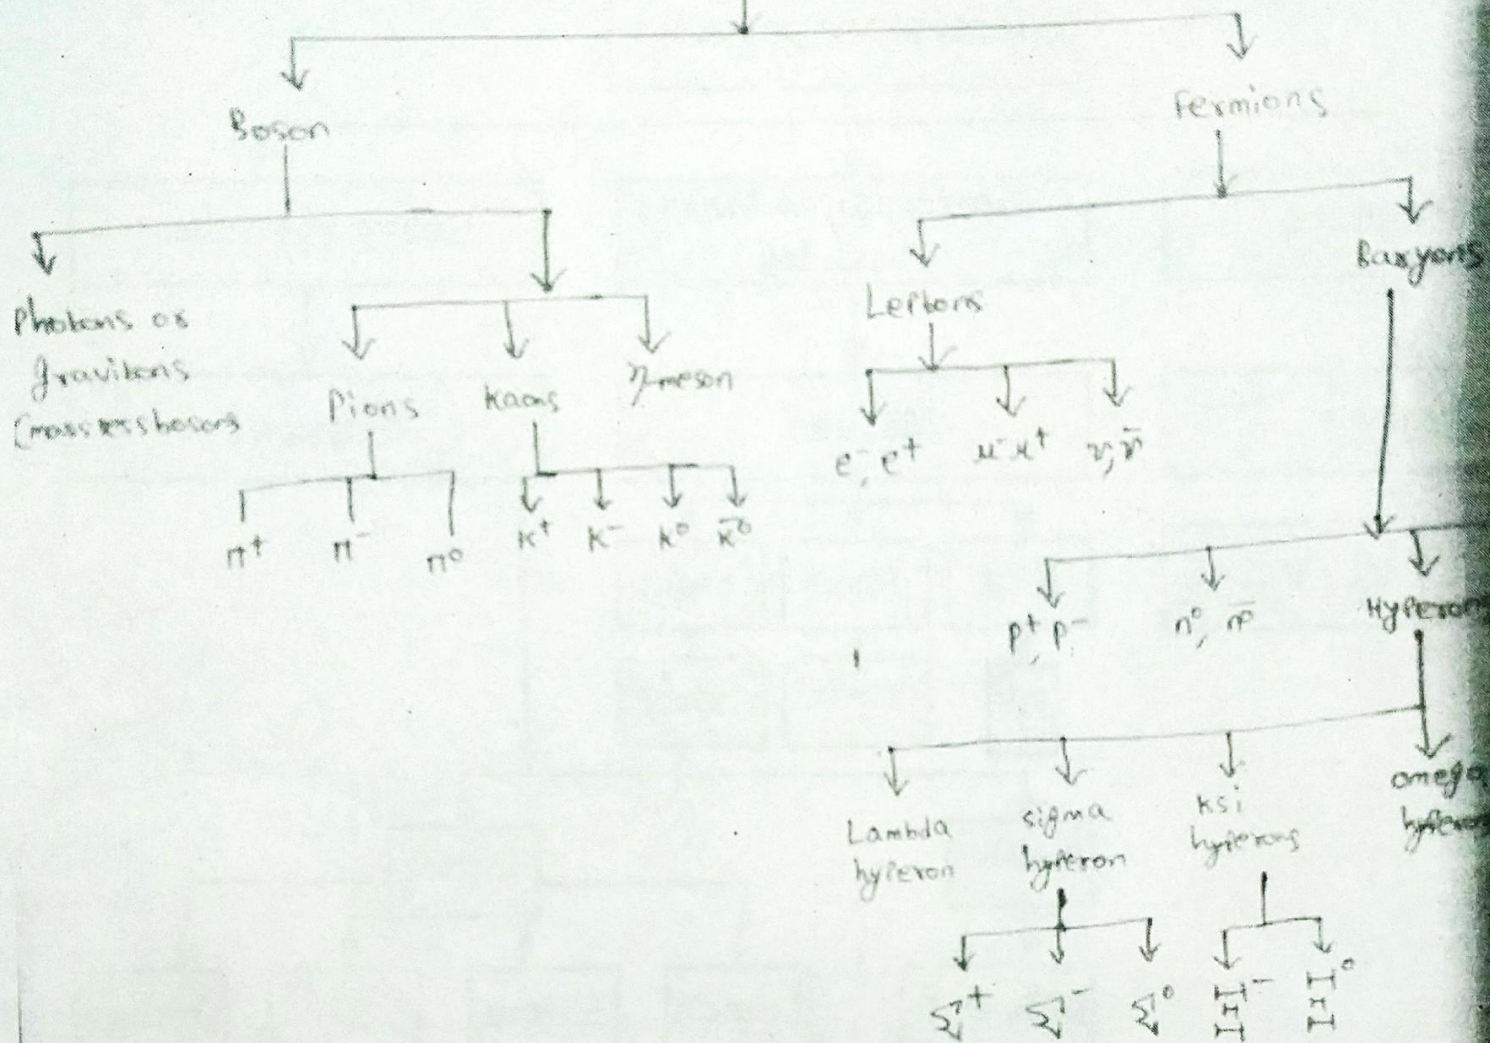 Boson
Fermions
Photons or
gravitons
(massless bosons
Pions
Kaons
η-meson
π+
π-
π0
K+
K-
K0
K̄0
Leptons
Baryons
e-, e+
μ- μ+
ν, ν̄
p+, p-
n0, n̄0
Hyperons
Lambda
hyperon
sigma
hyperon
ksi
hyperons
omega
hyperon
Σ+
Σ-
Σ0
Ξ-
Ξ0